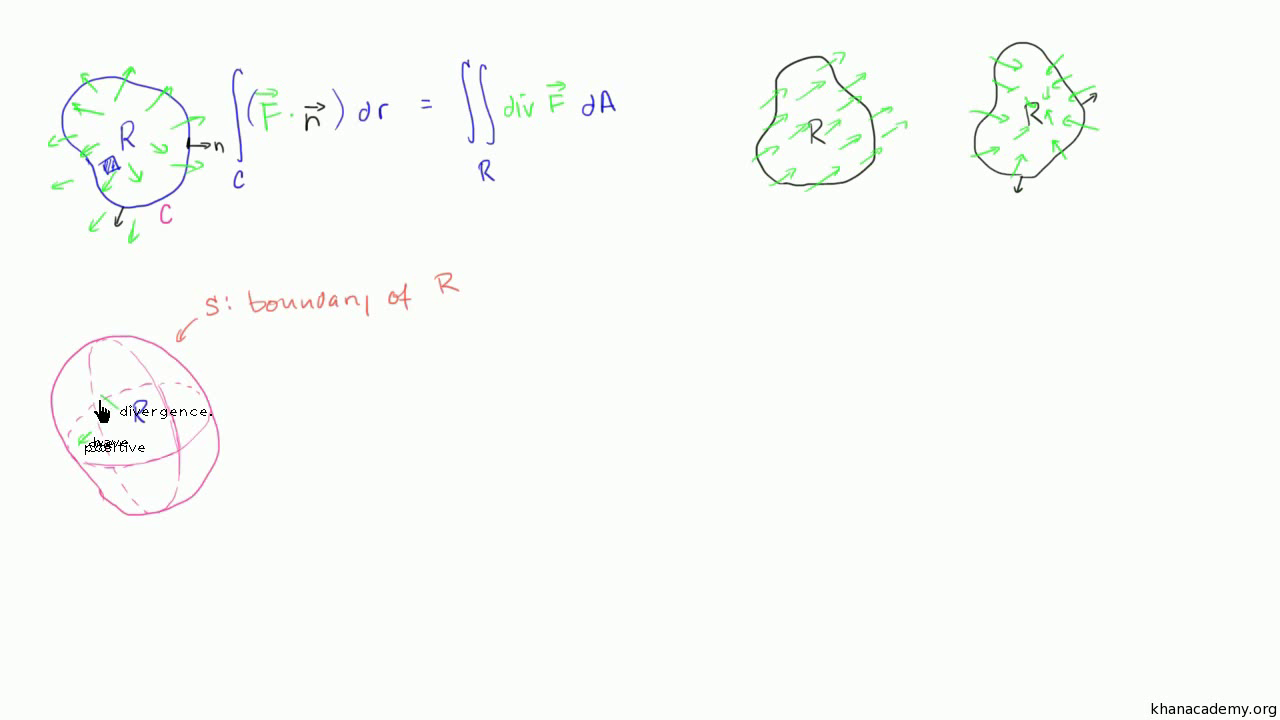 R
n
C
∫_C (F⃗ · n⃗) dr = ∬_R div F⃗ dA
R
R
S: boundary of R
R
divergence.
have
positive
khanacademy.org